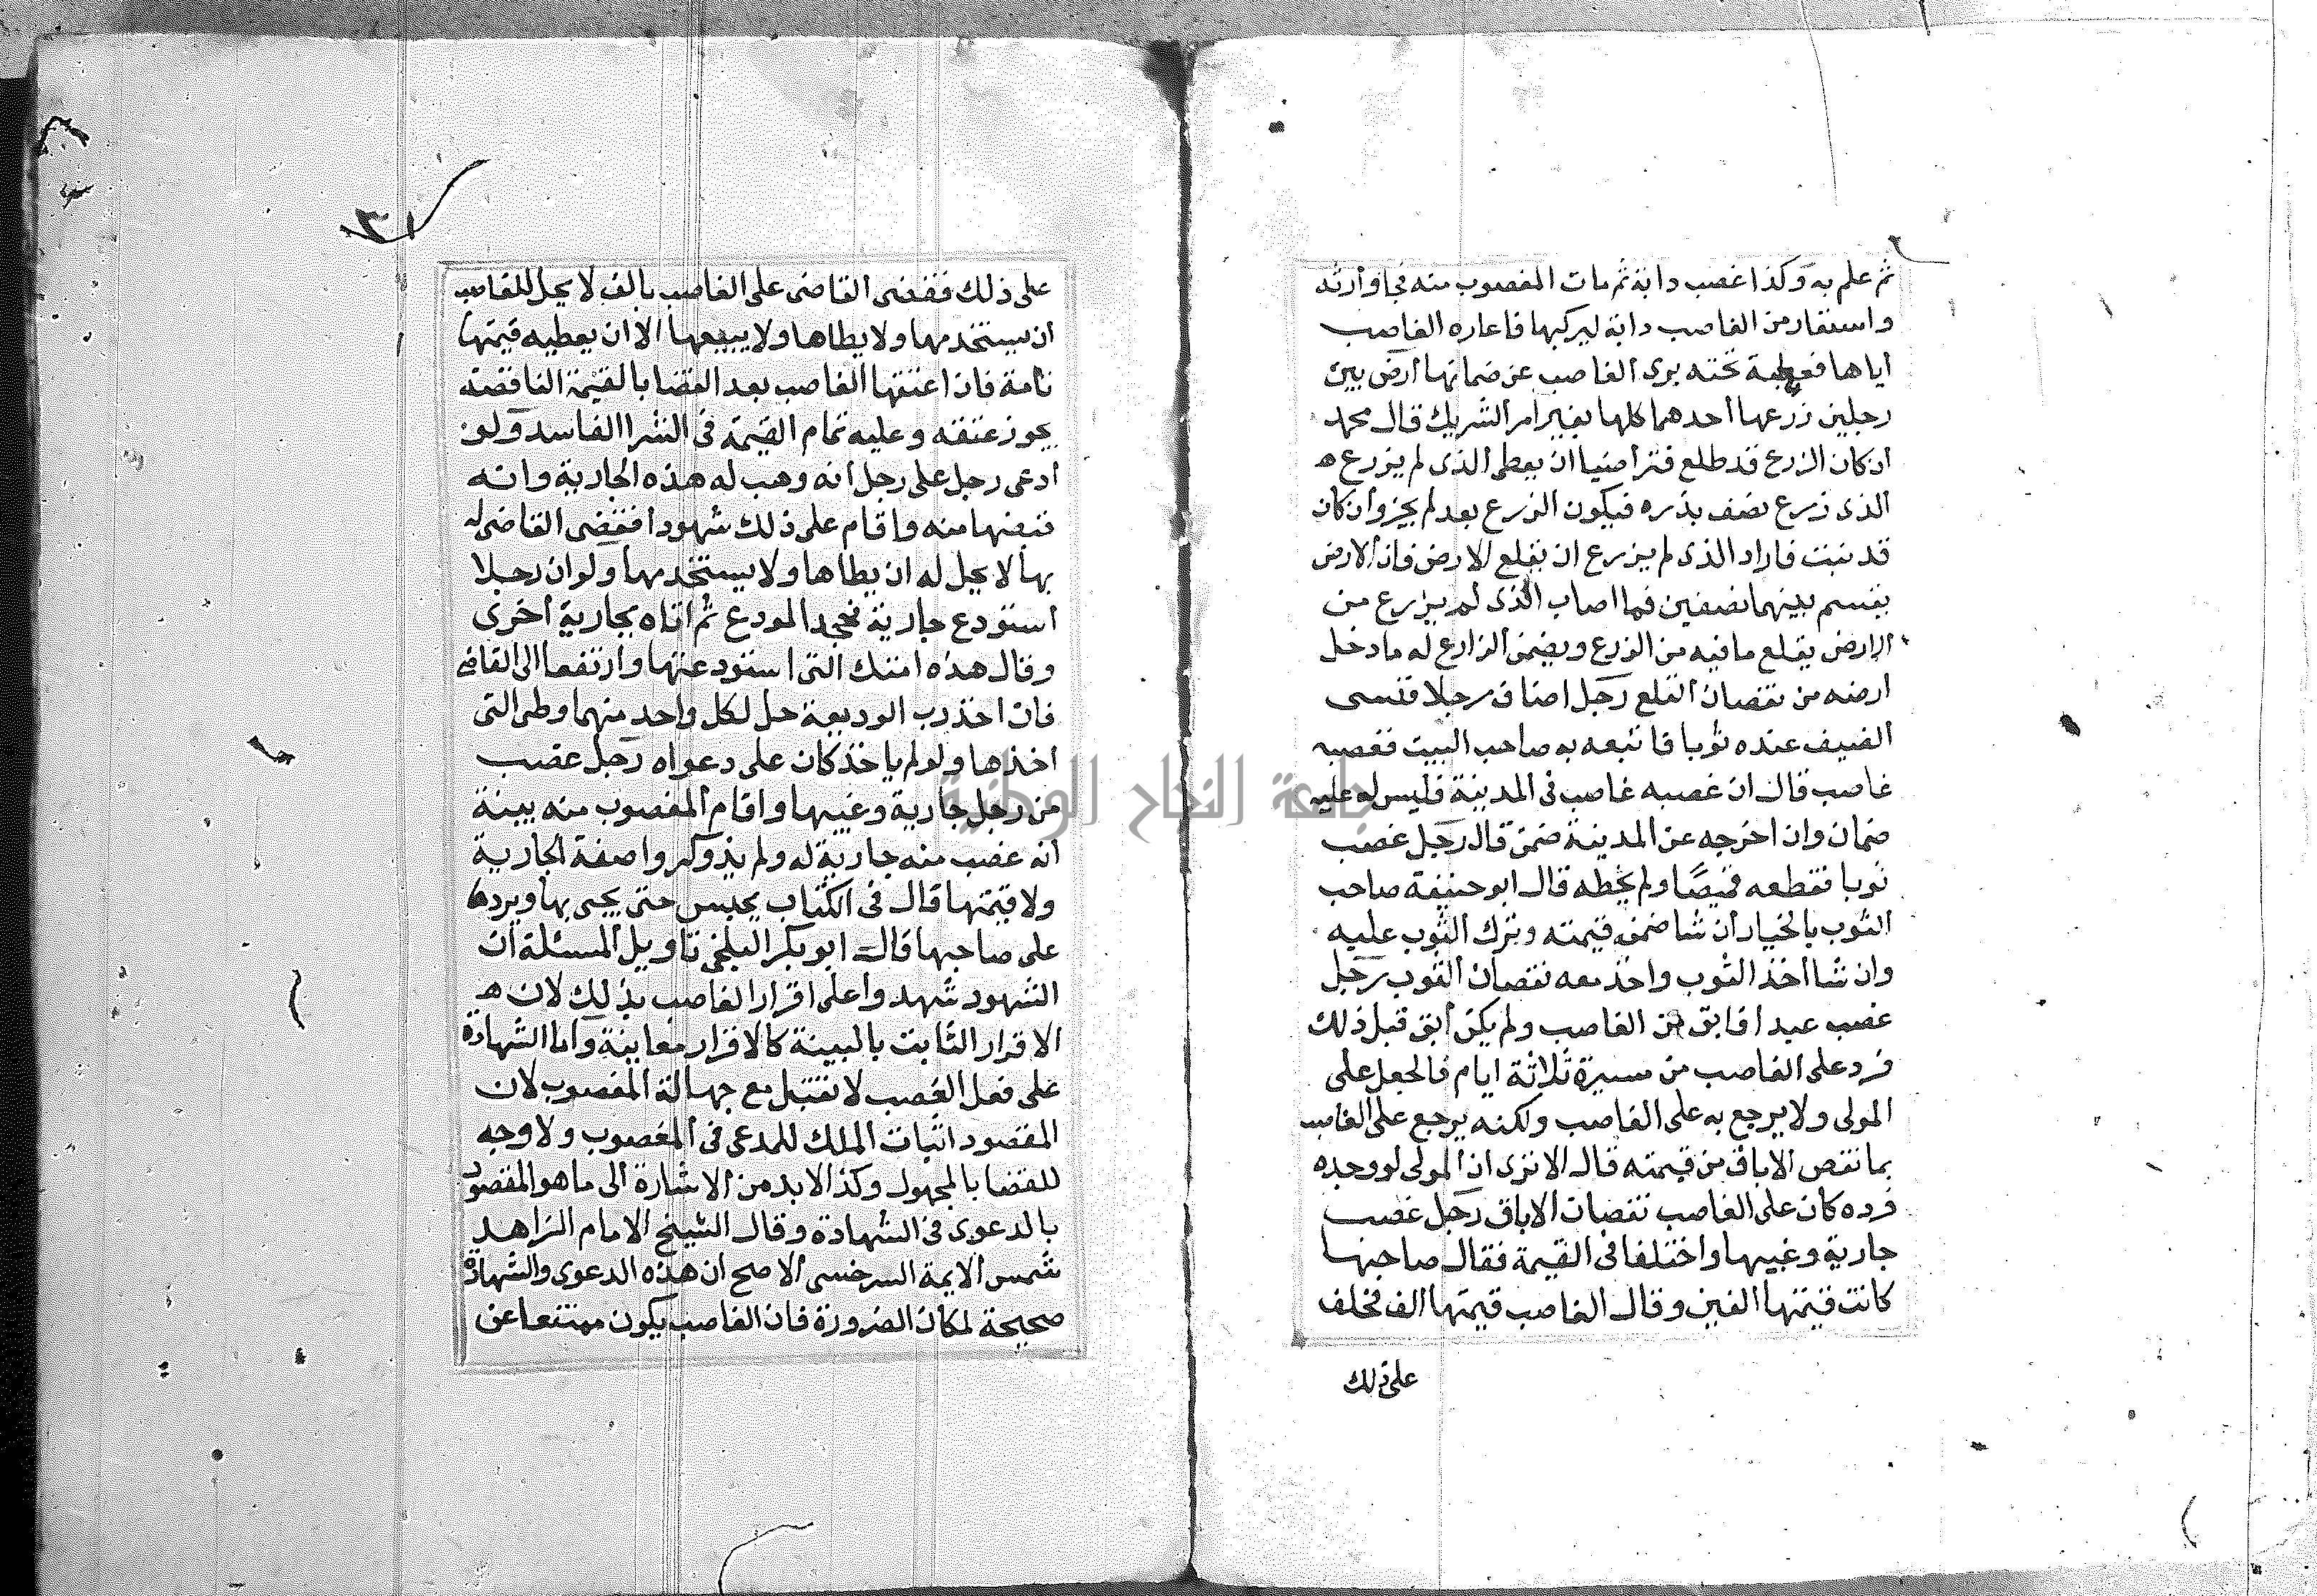 ثم علم به وكذا غصب دابة ثم مات المغصوب منه فجا وارثه
واستعار من الغاصب دابة ليركبها فاعاره الغاصب
اياها فعطبة تحته برى الغاصب عن ضمانها ارض بين
رجلين زرعها احدهما كلها بغير امر الشريك قال محمد
ان كان الزرع قد طلع فتراضيا ان يعطى الذى لم يزرع ه
الذى زرع نصف بذره فيكون الزرع بعد لم يجز وان كان
قد نبت فاراد الذى لم يزرع ان يقلع الارض فان الارض
يقسم بينهما نصفين فما اصاب الذى لم يزرع من
الارض يقلع ما فيه من الزرع ويضمن الزارع له ما دخل
ارضه من نقصان القلع رجل اضاف رجلا فنسى
الضيف عنده ثوبا فاتبعه به صاحب البيت فغصبه
غاصب قال ان غصبه غاصب فى المدينة فليس له عليه
ضمان وان اخرجه عن المدينة ضمن قال رجل غصب
ثوبا فقطعه قميصًا ولم يخطه قال ابو حنيفة صاحب
الثوب بالخيار ان شا ضمنه قيمته وترك الثوب عليه
وان شا اخذ الثوب واخذ معه نقصان الثوب رجل
غصب عبدا فابق من الغاصب ولم يكن أبق قبل ذلك
فرد على الغاصب من مسيرة ثلاثة ايام فالجعل على
المولى ولا يرجع به على الغاصب ولكنه يرجع على الغاصب
بما نقص الاباق من قيمته قال الا ترى ان المولى لو وجده
فرده كان على الغاصب نقصان الاباق رجل غصب
جارية وغيبها واختلفا فى القيمة فقال صاحبها
كانت قيمتها الفين وقال الغاصب قيمتها الف فحلف
على ذلك
٣١
على ذلك فقضى القاضى على الغاصب بالف لا يحل للغاصب
ان يستخدمها ولا يطاها ولا يبيعها الا ان يعطيه قيمتها
تامة فان اعتقها الغاصب بعد القضا بالقيمة الناقصة
يجوز عتقه وعليه تمام القيمة فى الشرا الفاسد ولو
ادعى رجل على رجل انه وهب له هذه الجارية وانه
قبضها منه واقام على ذلك شهودا فقضى القاضى له
بها لا يحل له ان يطاها ولا يستخدمها ولو ان رجلا
استودع جارية فجحد المودع ثم اتاه بجارية اخرى
وقال هذه امتك التى استودعتها وارتفعا الى القاضى
فان اخذ رب الوديعة حل لكل واحد منهما وطى التى
اخذها ولو لم ياخذ كان على دعواه رجل غصب
من رجل جارية وغيبها واقام المغصوب منه بينة
انه غصب منه جارية له ولم يذكروا صفة الجارية
ولا قيمتها قال فى الكتاب يحبس حتى يجى بها ويردها
على صاحبها قال ابو بكر البلخى تاويل المسئلة ان
الشهود شهدوا على اقرار الغاصب بذلك لان ه
الاقرار الثابت بالبينة كالاقرار معاينة واما الشهادة
على فعل الغصب لا تقبل مع جهالة المغصوب لان
المقصود اثبات الملك للمدعى فى المغصوب ولا وجه
للقضا بالمجهول وكذا لابد من الاشارة الى ما هو المقصود
بالدعوى فى الشهادة وقال الشيخ الامام الزاهد
شمس الايمة السرخسى الاصح ان هذه الدعوى والشهادة
صحيحة لمكان الضرورة فان الغاصب يكون ممتنعا عن
جامعة النجاح الوطنية